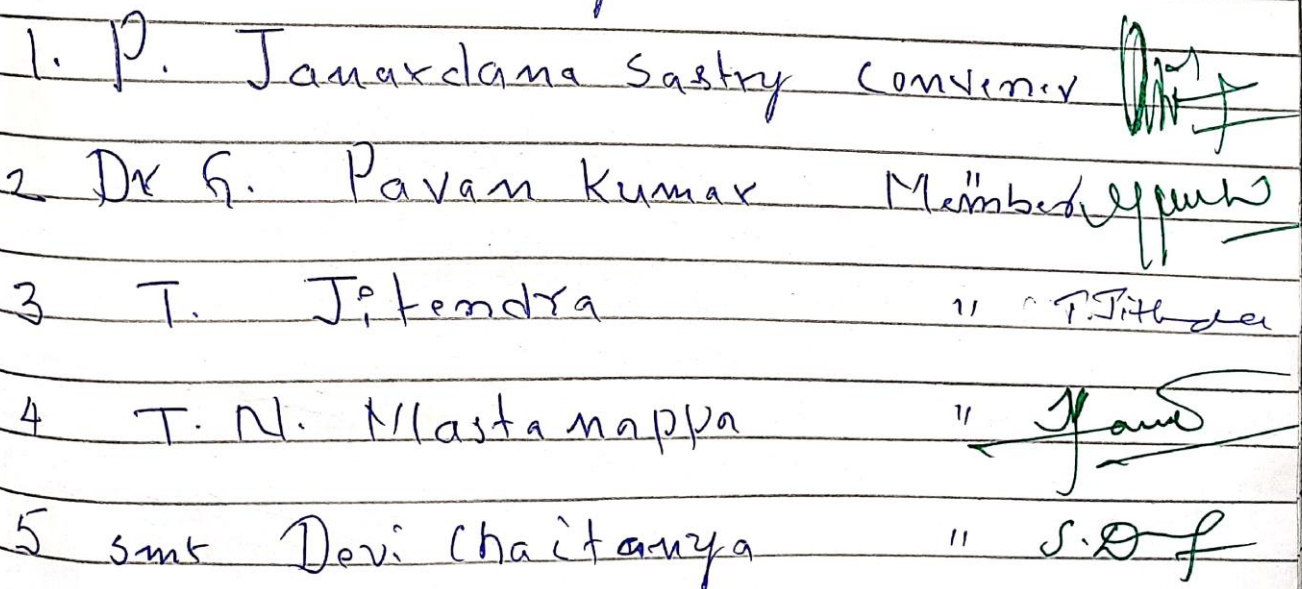 1. P. Janardana Sastry Convener
2 Dr G. Pavan Kumar Member
3 T. Jitendra " T. Jithendra
4 T. N. Mastanappa "
5 Smt Devi Chaitanya " S.D